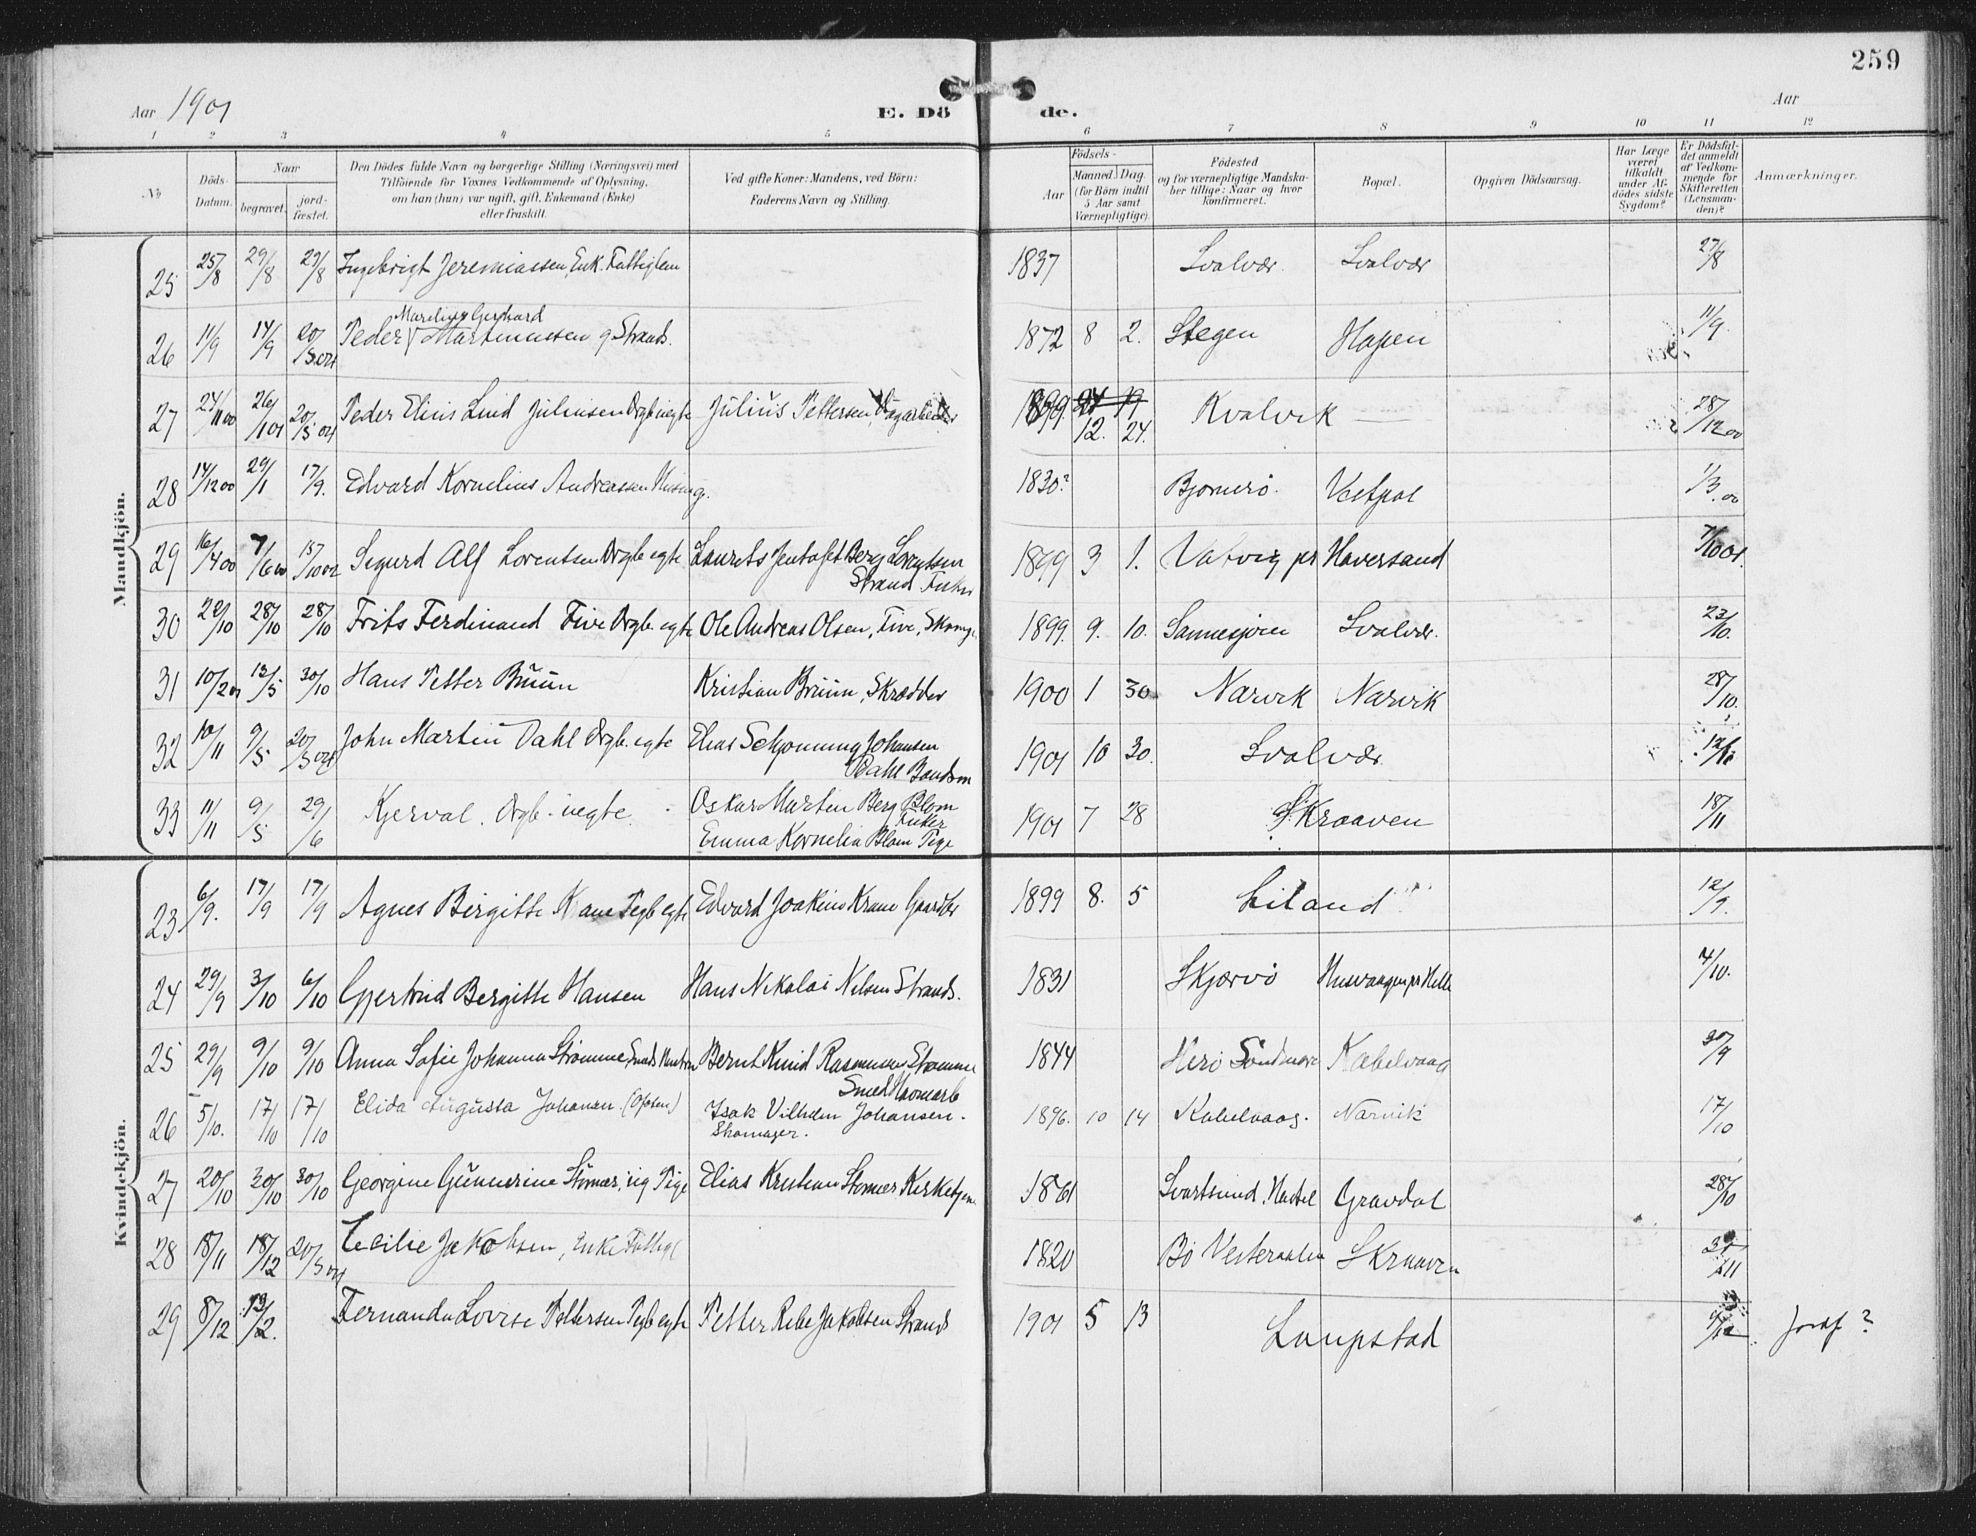 259
Aar 1901
E. Dö de.
Aar
1 2 3 4 5 6 7 8 9 10 11 12
No
Döds-Datum.
Naar
begravet.
jord-fæstet.
Den Dödes fulde Navn og borgerlige Stilling (Næringsvei) med
Tilföiende for Voxnes Vedkommende af Oplysning,
om han (hun) var ugift, gift, Enkemand (Enke)
eller fraskilt.
Ved gifte Koner: Mandens, ved Börn:
Faderens Navn og Stilling.
Födsels-
Aar
Maaned. Dag.
(for Börn indtil
5 Aar samt
Værnepligtige).
Födested
og for værnepligtige Mandska-
ber tillige: Naar og hvor
konfirmeret.
Bopæl.
Opgiven Dödsaarsag.
Har Læge
været
tilkaldt
under Af-
dödes sidste
Sygdom?
Er Dödsfal-
det anmeldt
af Vedkom-
mende for
Skifteretten
(Lensman-
den)?
Anmærkninger.
Mandkjön.
25 25/8 29/8 29/8 Ingebrigt Jeremiassen, Enk. Fattiglem 1837 Svolvær Svolvær 27/8
26 11/9 14/9 20/5 04 Peder Marelius Gerhard Martinussen g Strands. 1872 8 2. Stegen Hopen 11/9.
27 24/11 00 26/1 01 20/5 04 Peder Elius Lind Juliussen Drgb uegte Julius Pettersen, Dagarbeider 1899 12. 24. Kvalvik 28/12 00
28 14/12 00 29/1 17/9. Edvard Kornelius Andreassen 1830? Bjarnerö. Vestpol 1/3. 00
29 16/4 00 7/6 00 15/10 02 Sigurd Alf Lorentsen Drgb egte Laurits Jentoft Berg Lorentsen
Strand Fisker 1899 3 1. Votvig pr Haversand 7/10 01.
30 22/10 28/10 28/10 Frits Ferdinand Five Drgb. egte Ole Andreas Olsen, Five, Skomg. 1899. 9. 10. Sannesjöen Svolvær. 23/10.
31 10/2 01 12/5 30/10 Hans Petter Bruun Kristian Bruun, Skrædder 1900 1 30. Narvik Narvik 28/10.
32 10/11 9/5 20/5 04 John Martin Dahl Drgb. egte Elias Schjönning Johansen
Dahl Bondem 1901 10 30. Svolvær
33 11/11 9/5 29/6 Kjerval. Drgb. uegte. Oskar Martin Berg Blom
Fisker
Emma Kornelia Blom Pige 1901 7 28 Skraaven 18/11
Kvindekjön.
23 6/9. 17/9 17/9 Agnes Birgitte Krane Pigb egte Edvard Joakim Krane Gaardbr 1899 8. 5 Liland 12/9.
24 29/9 3/10 6/10 Gjertrud Bergitte Hansen Hans Nikolai Nilsen Strands. 1831 Skjærvö Husvaagen pr Helle 4/10.
25 29/9 9/10 9/10 Anna Sofie Johanna Strömme Smeds Hustru Bernt Knud Rasmussen Strömme
Smed Havnarb 1844 Herö Söndmöre Kabelvaag 30/9
26 5/10. 17/10 17/10 Elida Augusta Johansen. (Ofoten) Isak Vilhelm Johansen.
Skomager. 1896. 10 14 Kabelvaag. Narvik 17/10
27 20/10 30/10 30/10 Georgine Gunnerine Störmer, ug Pige Elias Kristian Störmer Kirketjen. 1861 Svartsund, Hassel Gravdal 28/10
28 18/11 18/12 20/5 04 Cecilie Jakobsen, Enke Fattigl 1820 Bö Vesteraalen Skraaven
29 8/12 13/12. Fernanda Lovise Pettersen Pigb egte Petter Rebe Jakobsen Strands 1901 5 13 Laupstad Jordf?